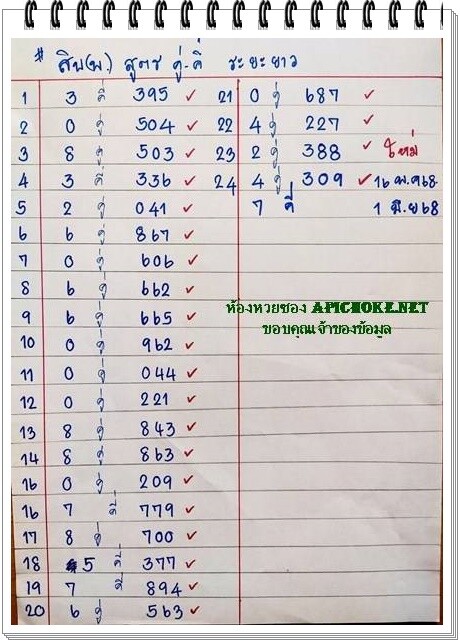 # สิบ(พ.) สูตร คู่-คี่ ระยะยาว
1 3 คี่ 395 ✓ 21 0 คู่ 687 ✓
2 0 คู่ 504 ✓ 22 4 คู่ 227 ✓
3 8 คู่ 503 ✓ 23 2 คู่ 388 ✓ ใหม่
4 3 คี่ 336 ✓ 24 4 คู่ 309 ✓ 16 พ.ค 68
5 2 คู่ 041 ✓ 7 คี่ 1 มิ.ย 68
6 6 คู่ 867 ✓
7 0 คู่ 606 ✓
8 6 คู่ 662 ✓
9 6 คู่ 665 ✓
ห้องหวยซอง APICHOKE.NET
ขอบคุณเจ้าของข้อมูล
10 0 คู่ 962 ✓
11 0 คู่ 044 ✓
12 0 คู่ 221 ✓
13 8 คู่ 843 ✓
14 8 คู่ 863 ✓
16 0 คู่ 209 ✓
16 7 คี่ 779 ✓
17 8 คู่ 700 ✓
18 5 คี่ 377 ✓
19 7 คี่ 894 ✓
20 6 คู่ 563 ✓